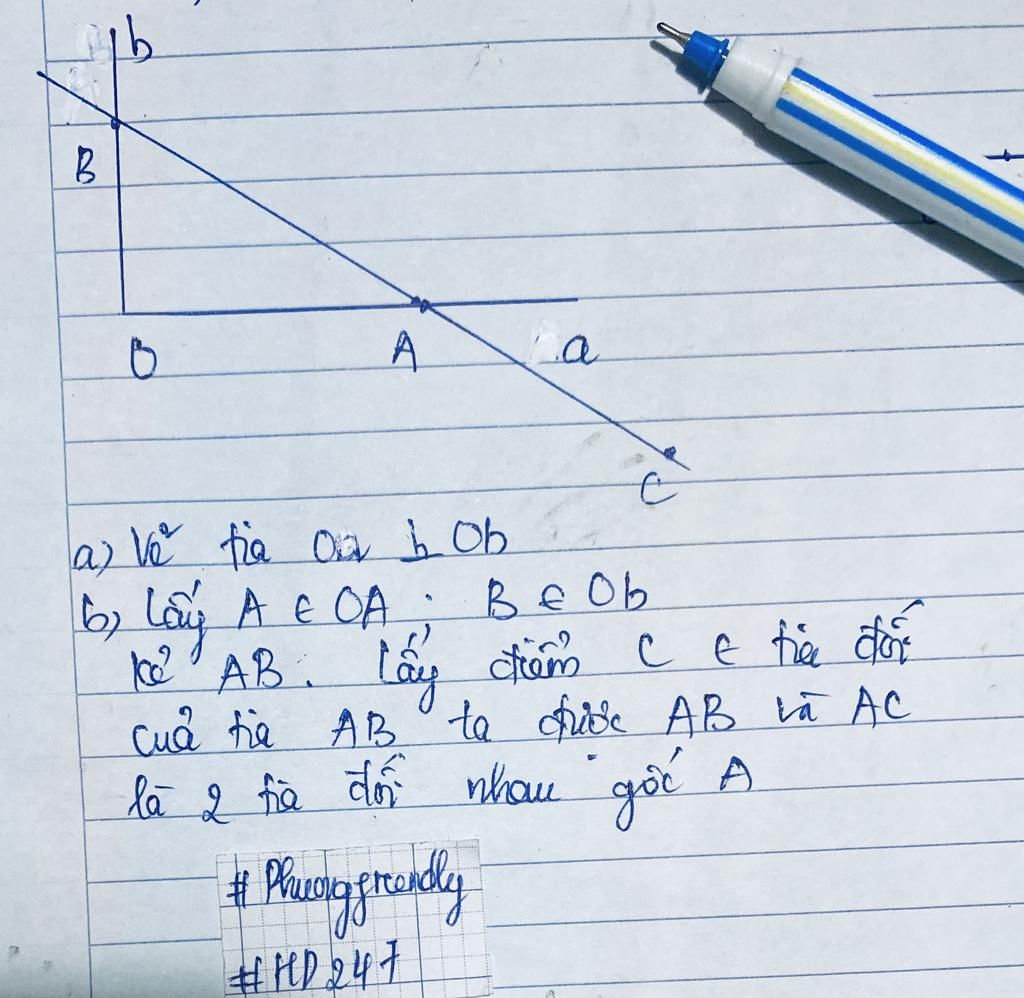 b
B
O
A
a
C
a) Vẽ tia Oa ⊥ Ob
b) Lấy A ∈ OA ; B ∈ Ob
Kẻ AB. Lấy điểm C ∈ tia đối
của tia AB ta được AB và AC
là 2 tia đối nhau gốc A
# Phuonggreendly
#HD247